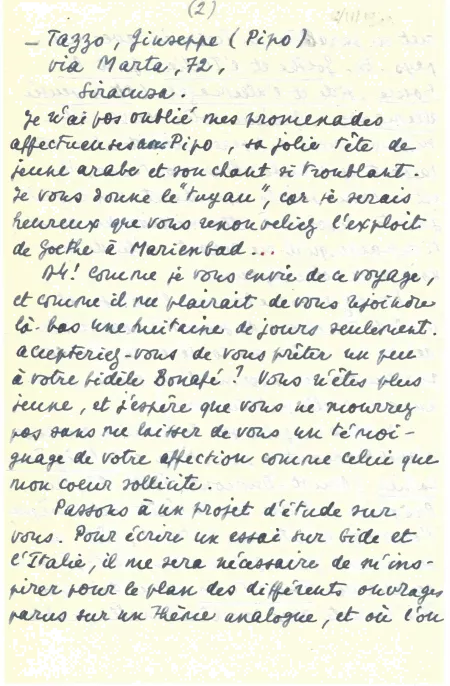 (2)
– Tazzo, Giuseppe (Pipo)
via Marta, 72,
Siracusa.
Je n'ai pas oublié mes promenades
affectueuses avec Pipo, sa jolie tête de
jeune arabe et son chant si troublant.
Je vous donne le "tuyau", car je serais
heureux que vous renouveliez l'exploit
de Goethe à Marienbad...
Ah! Comme je vous envie de ce voyage,
et comme il me plairait de vous rejoindre
là-bas une huitaine de jours seulement.
accepteriez-vous de vous prêter un peu
à votre fidèle Bonafé? Vous n'êtes plus
jeune, et j'espère que vous ne mourrez
pas sans me laisser de vous un témoi-
gnage de votre affection comme celui que
mon coeur sollicite.
Passons à un projet d'étude sur
vous. Pour écrire un essai sur Gide et
l'Italie, il me sera nécessaire de m'ins-
pirer pour le plan des différents ouvrages
parus sur un thème analogue, et où l'on